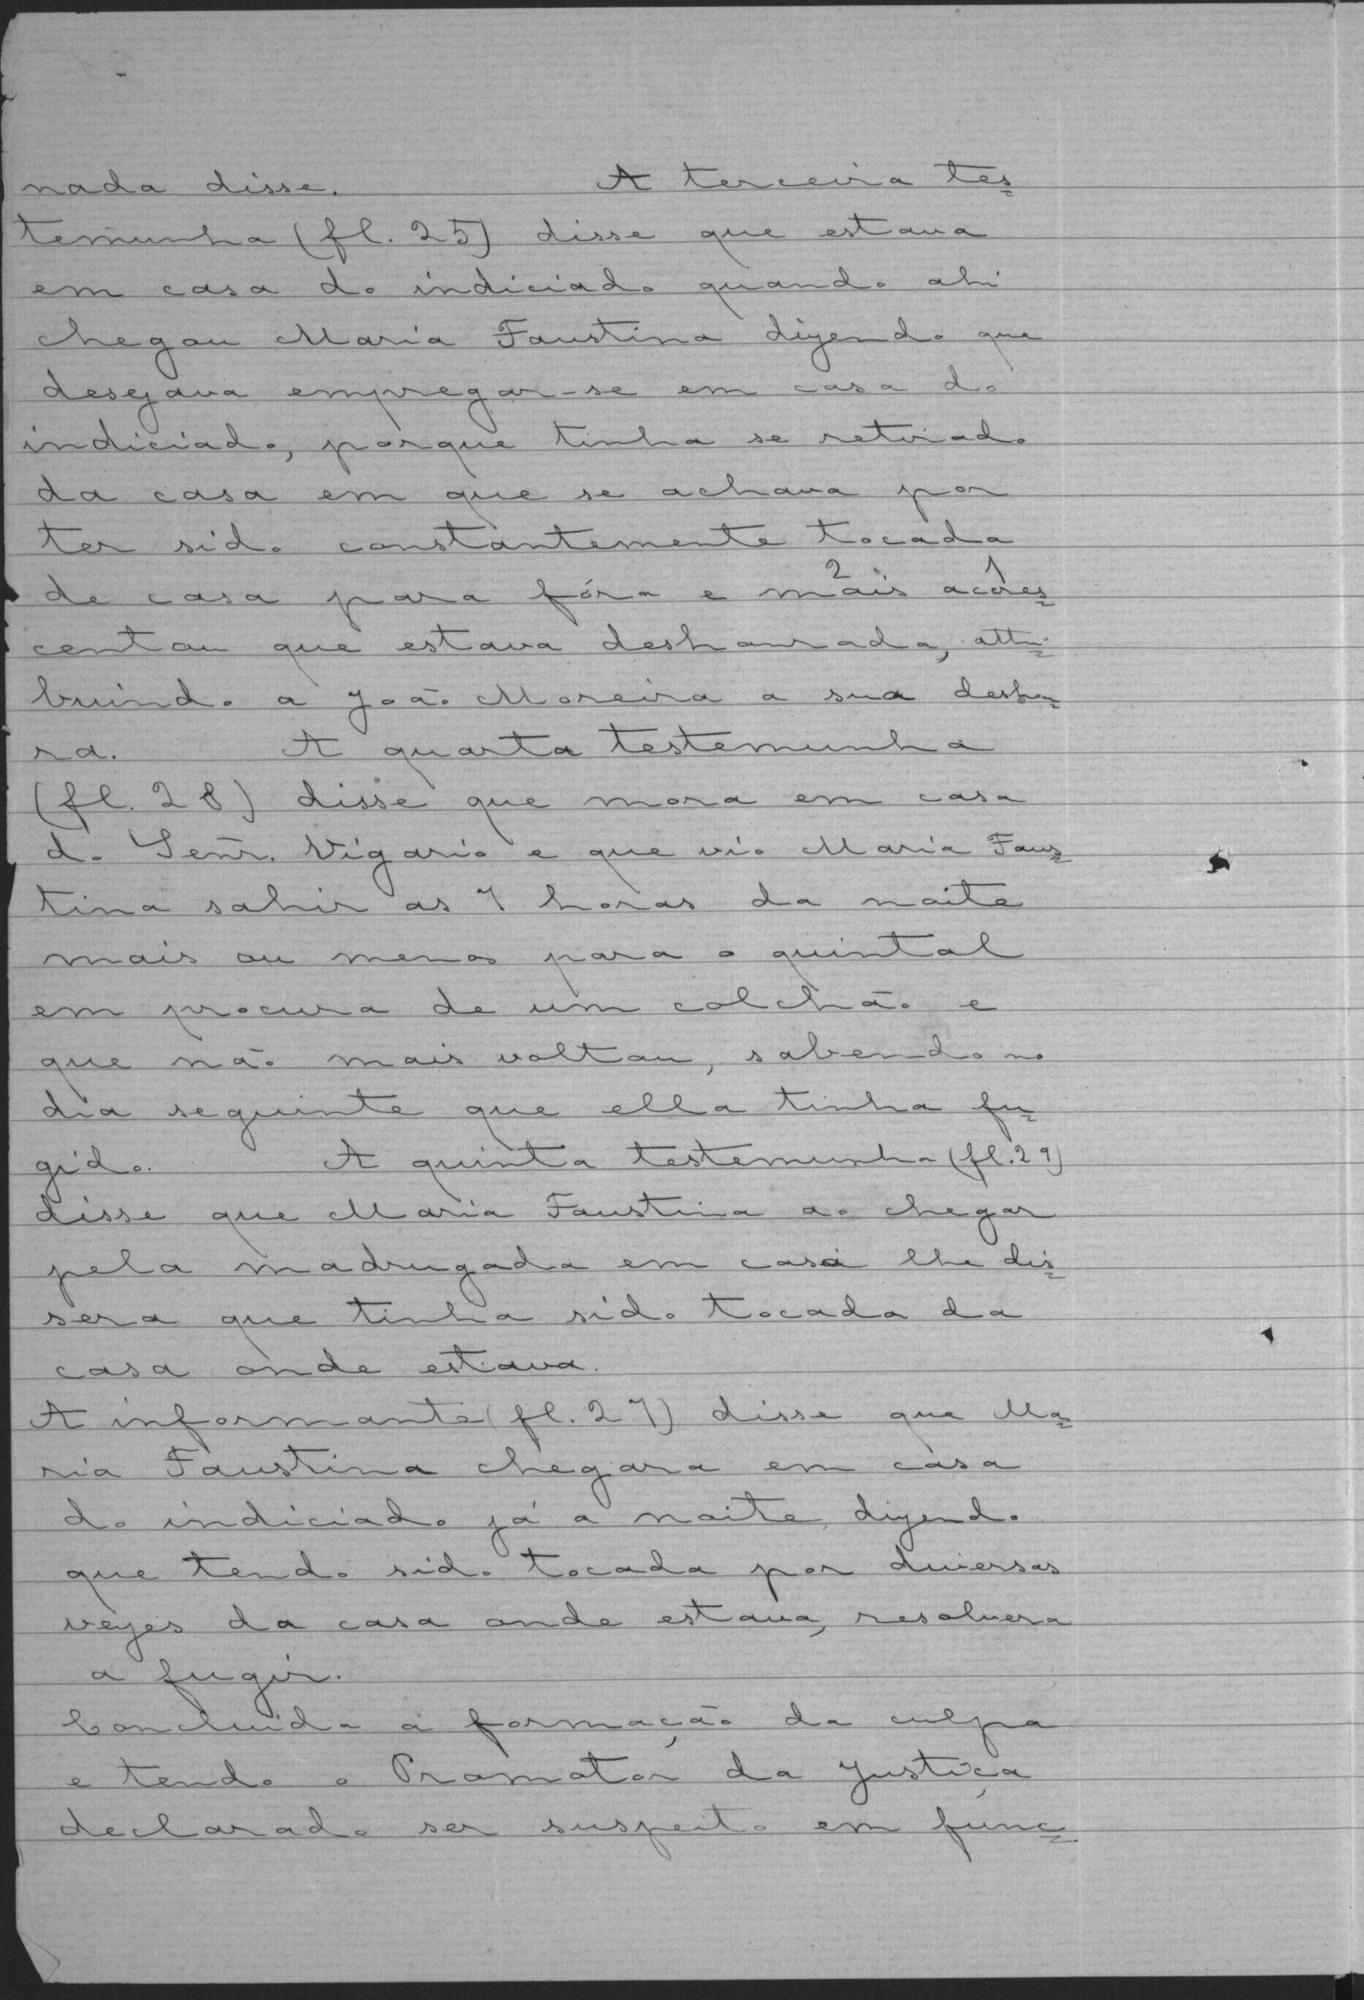 nada disse. A terceira tes=
temunha (fl. 25) disse que estava
em casa do indiciado quando ahi
chegou Maria Faustina dizendo que
desejava empregar-se em casa do
indiciado, porque tinha se retirado
da casa em que se achava por
ter sido constantemente tocada
de casa para fóra e mais 2 acres= 1
centou que estava deshonrada, attri=
buindo a João Moreira a sua desho=
ra. A quarta testemunha
(fl. 28) disse que mora em casa
do Senr. Vigario e que vio Maria Faus=
tina sahir as 7 horas da noite
mais ou menos para o quintal
em procura de um colchão e
que não mais voltou, sabendo no
dia seguinte que ella tinha fu=
gido. A quinta testemunha (fl. 29)
disse que Maria Faustina ao chegar
pela madrugada em casa lhe dis=
sera que tinha sido tocada da
casa onde estava.
A informante (fl. 27) disse que Ma=
ria Faustina chegara em casa
do indiciado já a noite, dizendo
que tendo sido tocada por diversas
vezes da casa onde estava, resolvera
a fugir.
Concluida a formação da culpa
e tendo o Promotor da Justiça
declarado ser suspeito em func=